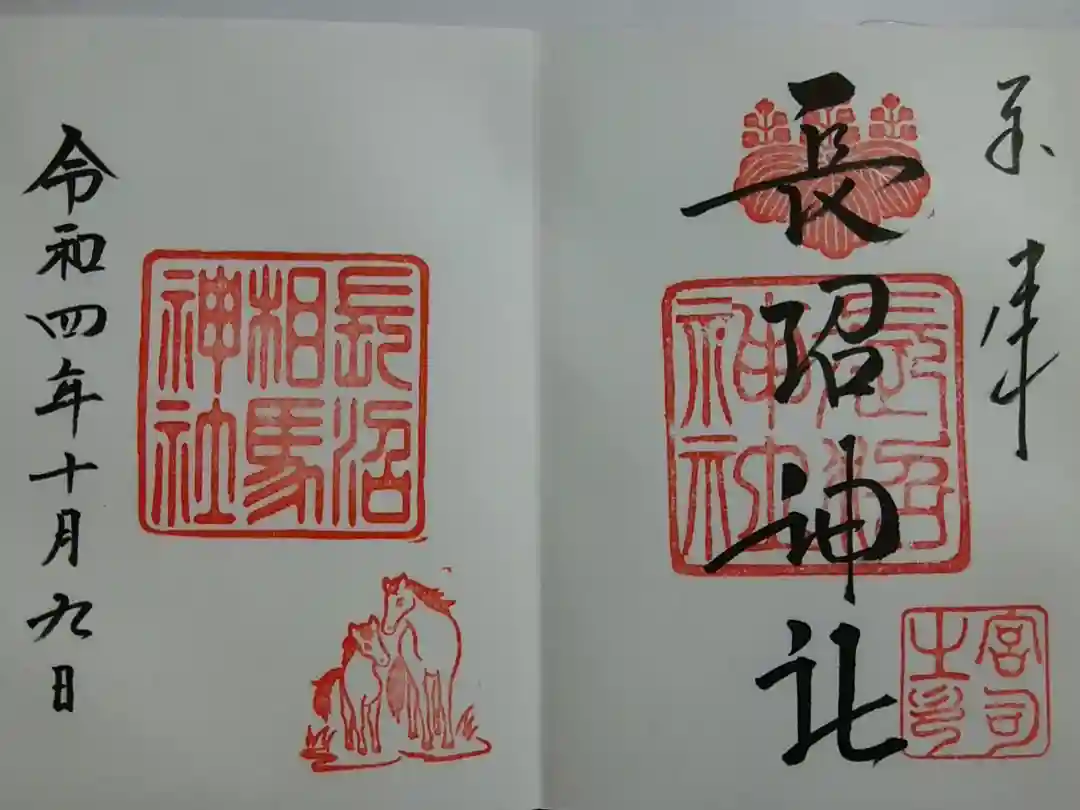 奉拝
長沼神社
長沼神社
宮司之印
長沼
相馬
神社
令和四年十月九日